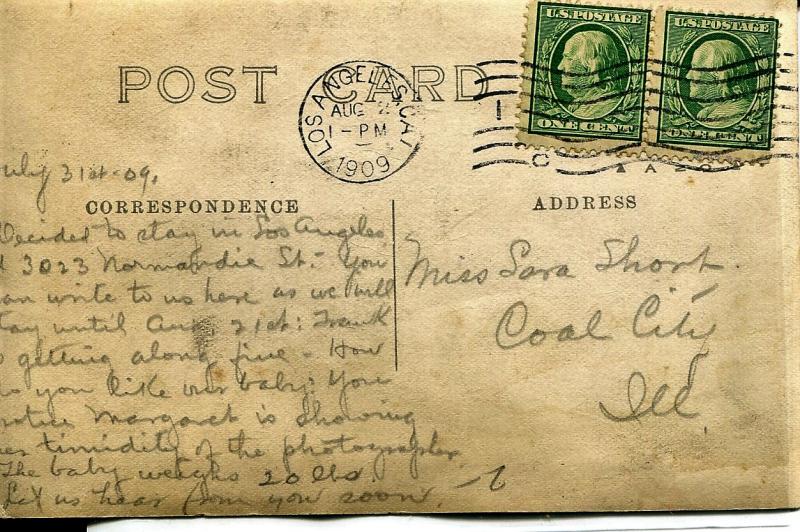 U.S.POSTAGE U.S.POSTAGE
ONE CENT ONE CENT
POST CARD
LOS ANGELES, CAL
AUG 2
1-PM
1909
uly 31st-09.
CORRESPONDENCE
ADDRESS
Decided to stay in Los Angeles
3023 Normandie St. You
an write to us here as we will
tay until Aug. 21st: Frank
getting along fine - How
you like our baby? You
otice Margaret is showing
er timidity of the photographer
The baby weighs 20 lbs.
Let us hear from you soon.
Miss Sara Short
Coal City
Ill